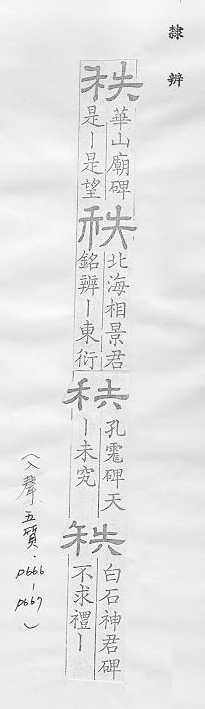 隸辨
秩 華山廟碑
是｜是望
秩 北海相景君
銘辨｜東衍
秩 孔霮碑天
｜未究
秩 白石神君碑
不求禮｜
（入聲五質·p666-p667）